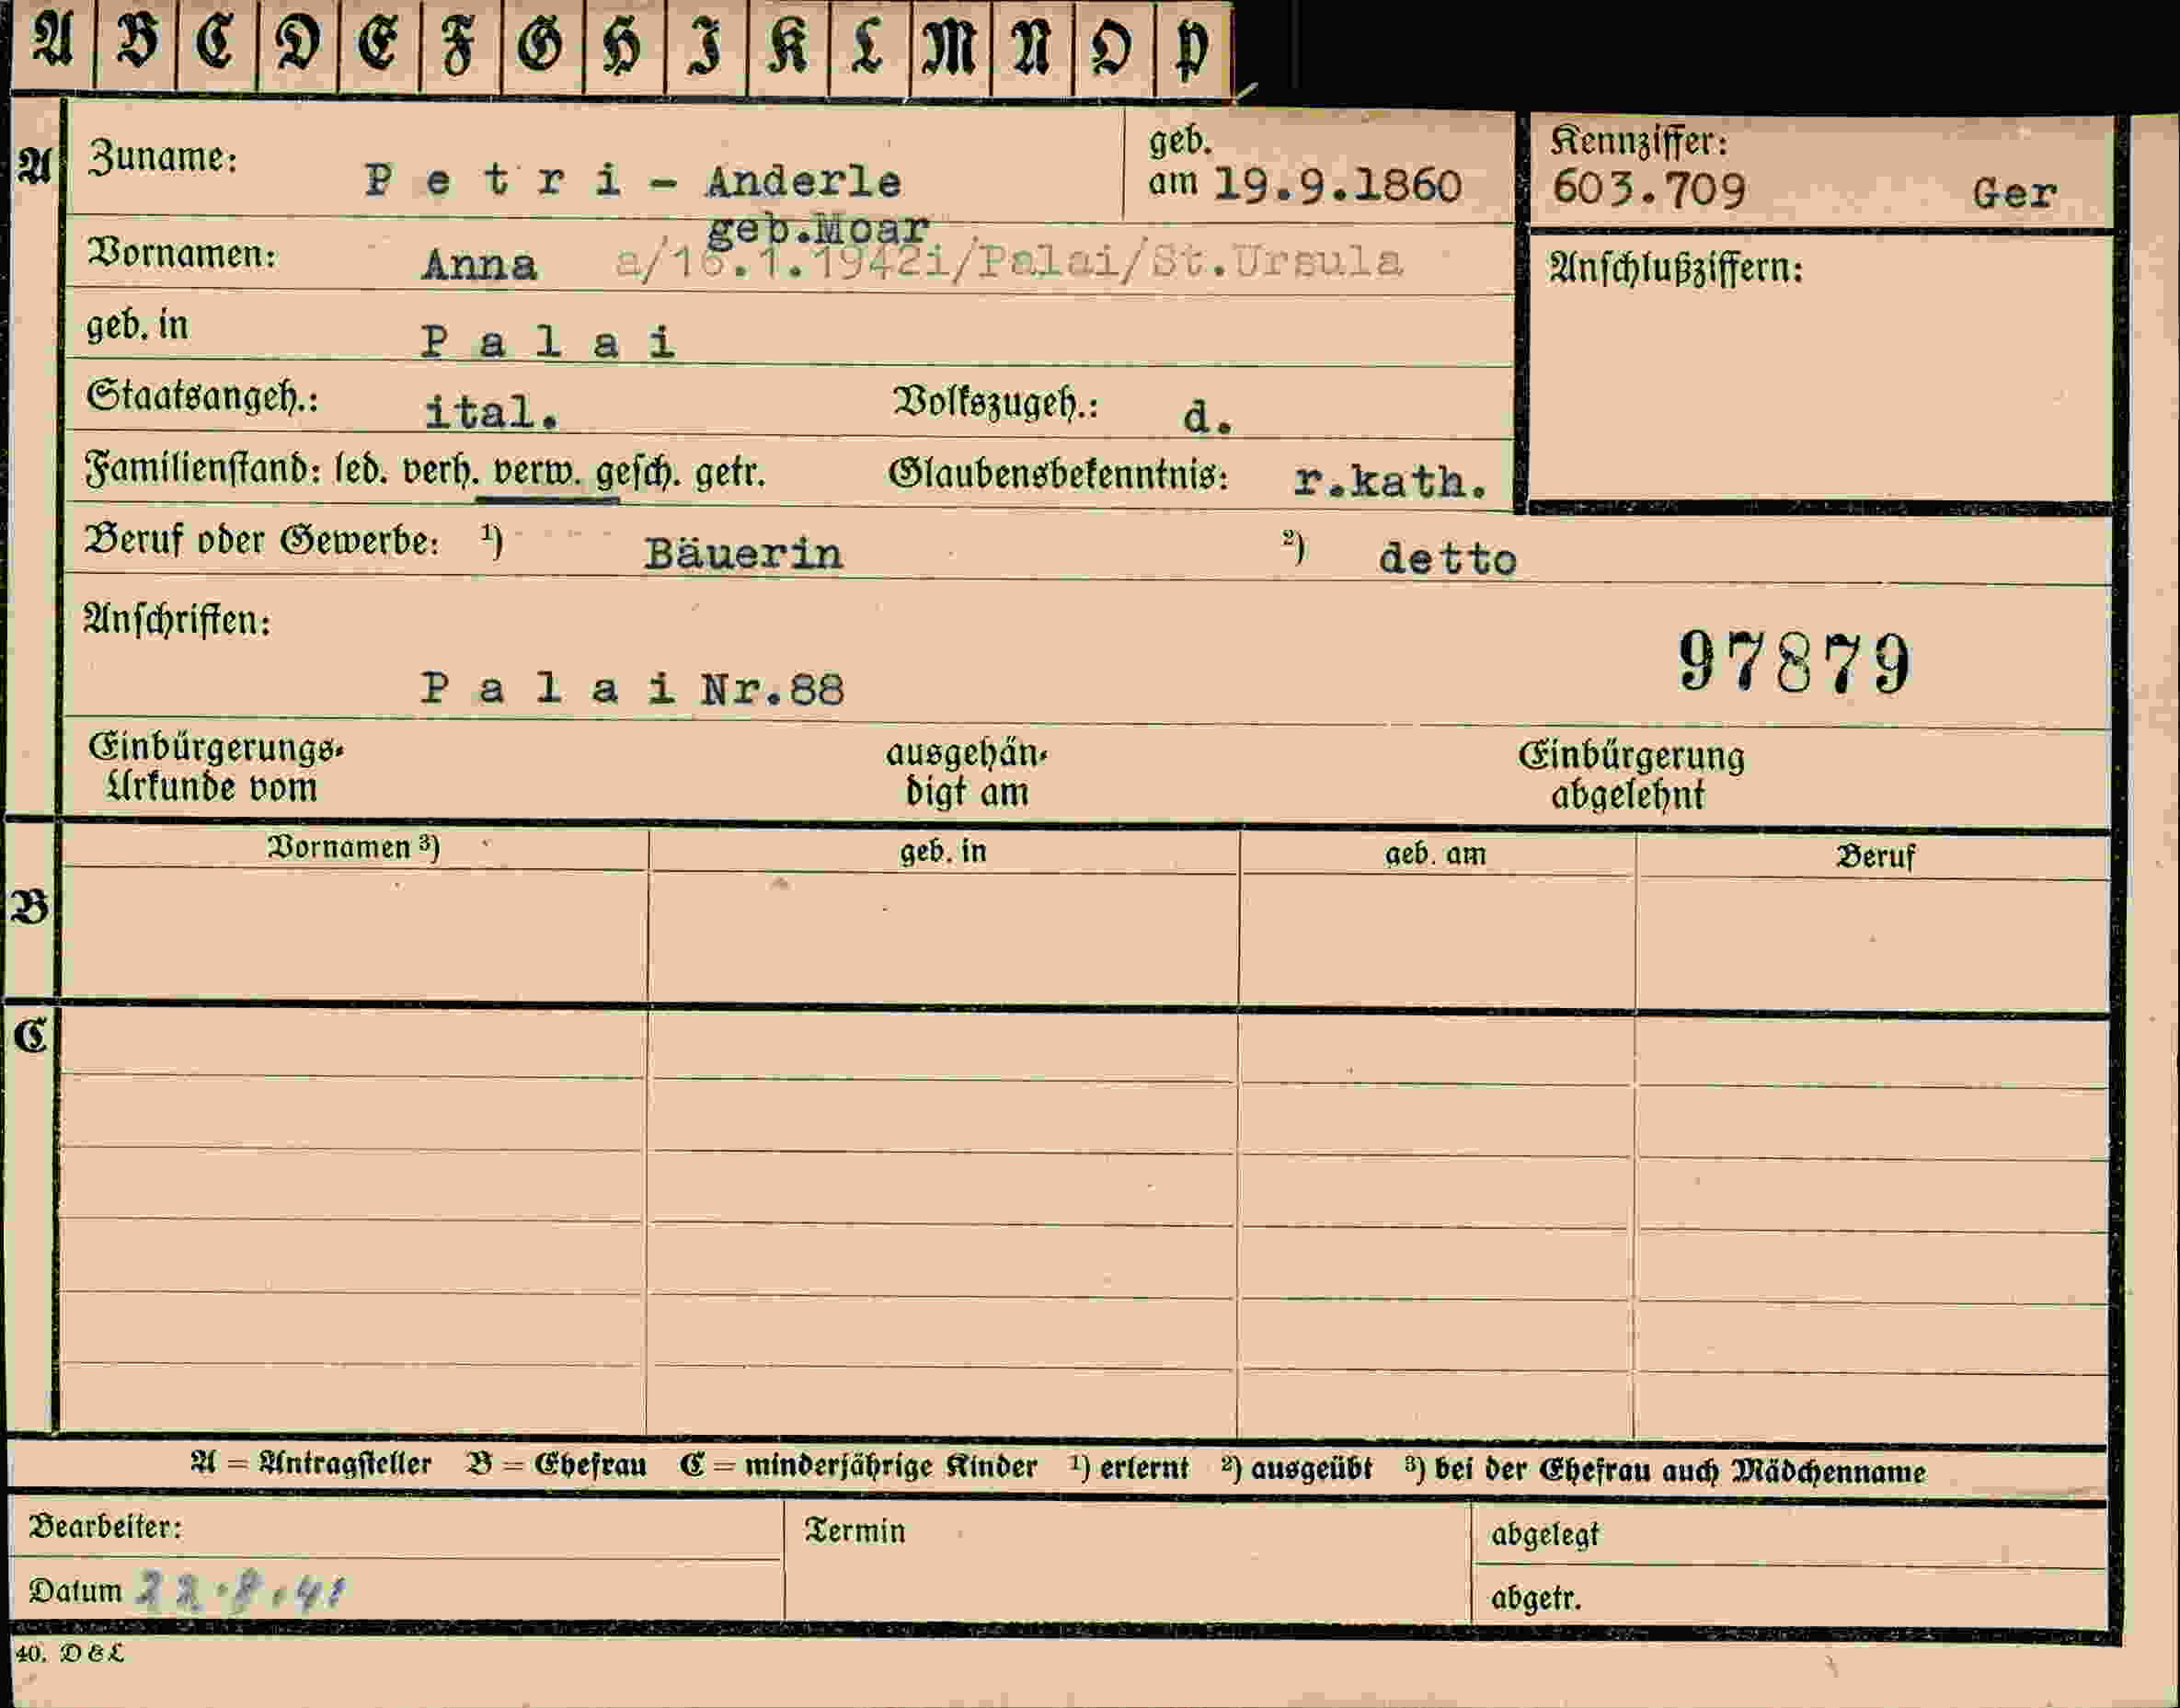 A B C D E F G H I K L M N O P
A Zuname: Petri - Anderle geb. am 19.9.1860 Kennziffer: 603.709 Ger
geb.Moar
Vornamen: Anna a/16.1.1942i/Palai/St.Ursula Anschlußziffern:
geb. in Palai
Staatsangeh.: ital. Volkszugeh.: d.
Familienstand: led. verh. verw. gesch. getr. Glaubensbekenntnis: r.kath.
Beruf oder Gewerbe: 1) Bäuerin 2) detto
Anschriften:
Palai Nr.88 97879
Einbürgerungs- ausgehän- Einbürgerung
Urkunde vom digt am abgelehnt
Vornamen 3) geb. in geb. am Beruf
B
C
A = Antragsteller B = Ehefrau C = minderjährige Kinder 1) erlernt 2) ausgeübt 3) bei der Ehefrau auch Mädchenname
Bearbeiter: Termin abgelegt
Datum 22.8.41 abgetr.
40. D & L